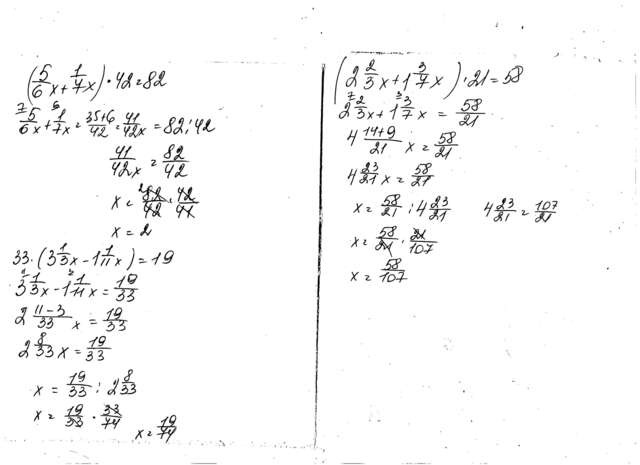 (5/6 x + 1/7 x) · 42 = 82
7 5/6 x + 6 1/7 x = 35+6/42 = 41/42 x = 82 : 42
41/42 x = 82/42
x = 82/42 · 42/41
x = 2
33 · (3 1/3 x - 1 1/11 x) = 19
3 1/3 x - 1 1/11 x = 19/33
2 11-3/33 x = 19/33
2 8/33 x = 19/33
x = 19/33 : 2 8/33
x = 19/33 · 33/74
x = 19/74
(2 2/3 x + 1 3/7 x) · 21 = 58
2 2/3 x + 1 3/7 x = 58/21
4 14+9/21 x = 58/21
4 23/21 x = 58/21
x = 58/21 : 4 23/21 4 23/21 = 107/21
x = 58/21 · 21/107
x = 58/107